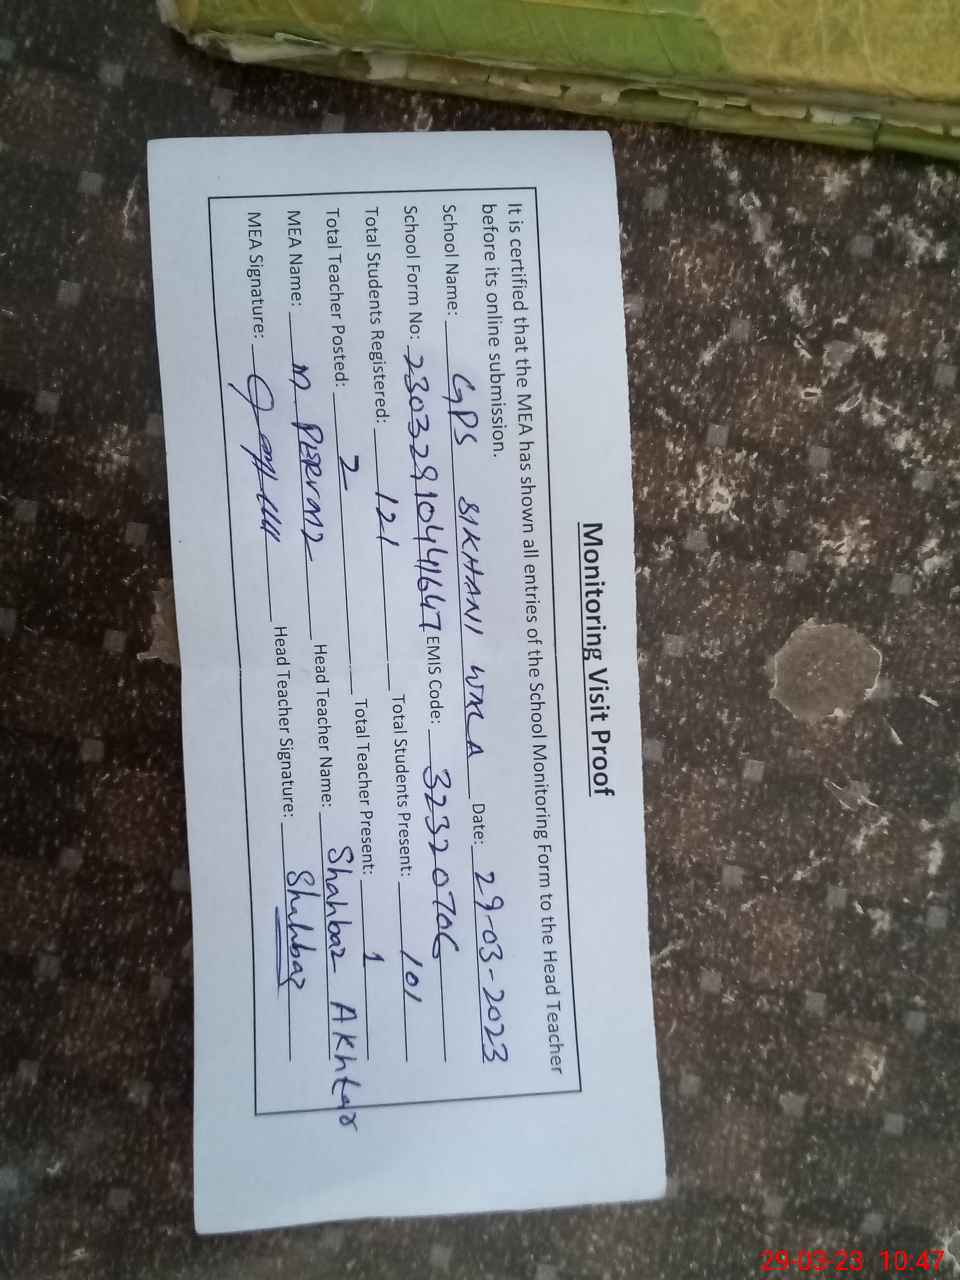 Monitoring Visit Proof
It is certified that the MEA has shown all entries of the School Monitoring Form to the Head Teacher
before its online submission.
School Name: GPS SIKHANI WALA Date: 29-03-2023
School Form No: 23032910441647 EMIS Code: 32320706
Total Students Registered: 121 Total Students Present: 101
Total Teacher Posted: 2 Total Teacher Present: 1
MEA Name: M Head Teacher Name: Shahbaz Akhtar
MEA Signature: Head Teacher Signature: Shahbaz
29-03-23 10:47